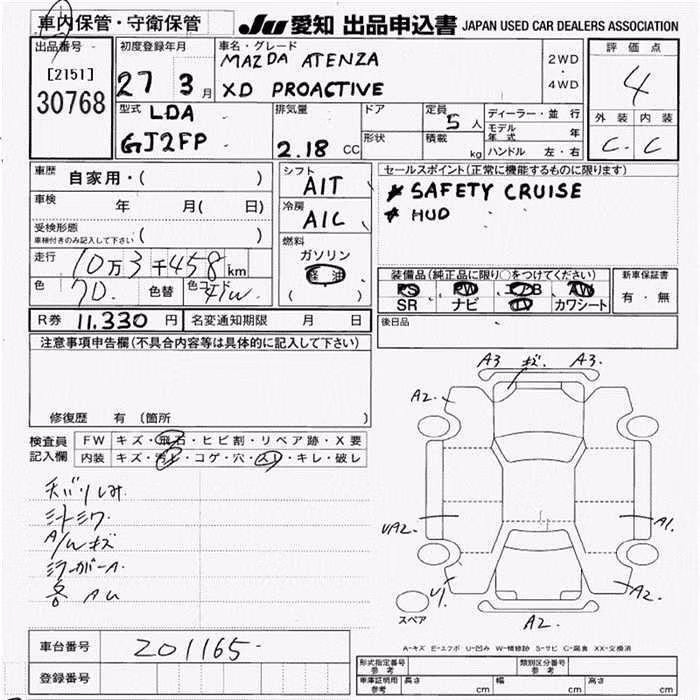 車内保管・守衛保管 JU 愛知 出品申込書 JAPAN USED CAR DEALERS ASSOCIATION
出品番号 初度登録年月 車名・グレード 評価点
[2151] 27 3月 MAZDA ATENZA 2WD
・
30768 XD PROACTIVE 4WD 4
型式 LDA 排気量 ドア 定員 5人 ディーラー・並行 外装 内装
GJ2FP 2.18 CC 形状 積載 kg モデル年式 年 C. C
ハンドル 左・右
車歴 自家用・( ) シフト AIT セールスポイント(正常に機能するものに限ります)
車検 年 月( 日) 冷房 AIC * SAFETY CRUISE
受検形態 * HUD
車検付きのみ記入して下さい ( )
燃料
走行 10万3千458km ガソリン
軽油
( )
色 7D. 色替 色コード 41W
装備品(純正品に限り○をつけてください) 新車保証書
PS PW エアB AW 有・無
SR ナビ TV カワシート
R券 11.330 円 名変通知期限 月 日 後日品
注意事項申告欄(不具合内容等は具体的に記入して下さい)
修復歴 有 (箇所 )
検査員 FW キズ・飛石・ヒビ割・リペア跡・X要
記入欄 内装 キズ・汚レ・コゲ・穴・スレ・キレ・破レ
A3 キズ. A3.
A2.
シートシワ.
A/Wキズ
UA2. A1.
ミラーガーA.
各 AU
U1. A2.
スペア A2.
A-キズ E-エクボ U-凹み W-補修跡 S-サビ C-腐食 XX-交換済
車台番号 201165
登録番号
形式指定番号 参考 類別区分番号 参考
車庫証明用 参考 長さ cm 幅 cm 高さ cm